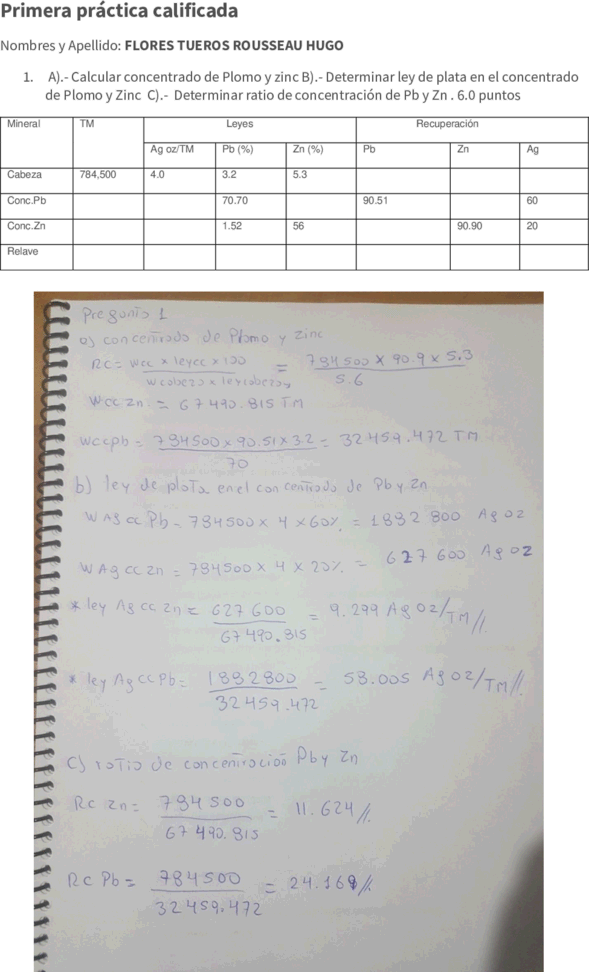 Primera práctica calificada
Nombres y Apellido: FLORES TUEROS ROUSSEAU HUGO
1. A).- Calcular concentrado de Plomo y zinc B).- Determinar ley de plata en el concentrado
de Plomo y Zinc C).- Determinar ratio de concentración de Pb y Zn . 6.0 puntos
Mineral TM Leyes Recuperación
Ag oz/TM Pb (%) Zn (%) Pb Zn Ag
Cabeza 784,500 4.0 3.2 5.3
Conc.Pb 70.70 90.51 60
Conc.Zn 1.52 56 90.90 20
Relave
Pregunta 1
a) concentrado de Plomo y zinc
RC = Wcc x leycc x 100 = 784500 x 90.9 x 5.3
Wcabeza x leycabeza 5.6
Wcc zn = 67490.815 TM
Wccpb = 784500 x 90.51 x 3.2 = 32459.472 TM
70
b) ley de plata en el concentrado de Pb y Zn
WAg cc Pb = 784500 x 4 x 60% = 1882800 Ag oz
WAg cc zn = 784500 x 4 x 20% = 627600 Ag oz
* ley Ag cc zn = 627600 = 9.299 Ag oz/TM//
67490.815
* ley Ag cc Pb = 1882800 = 58.005 Ag oz/TM//
32459.472
c) ratio de concentración Pb y Zn
Rc zn = 784500 = 11.624//
67490.815
Rc Pb = 784500 = 24.169//
32459.472